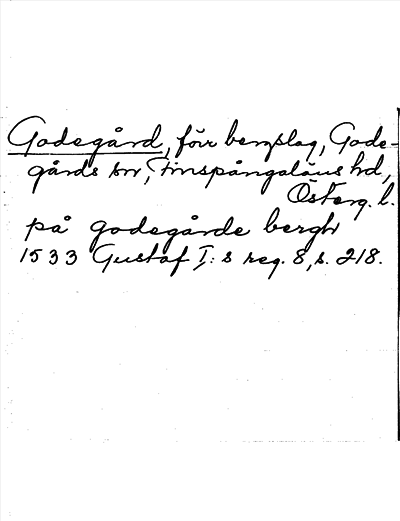 Godegård, förr bergslag, Gode-
gårds sn, Finspångaläns hd,
Österg. l.
på godegårde bergh
1533 Gustaf I:s reg. 8, s. 218.